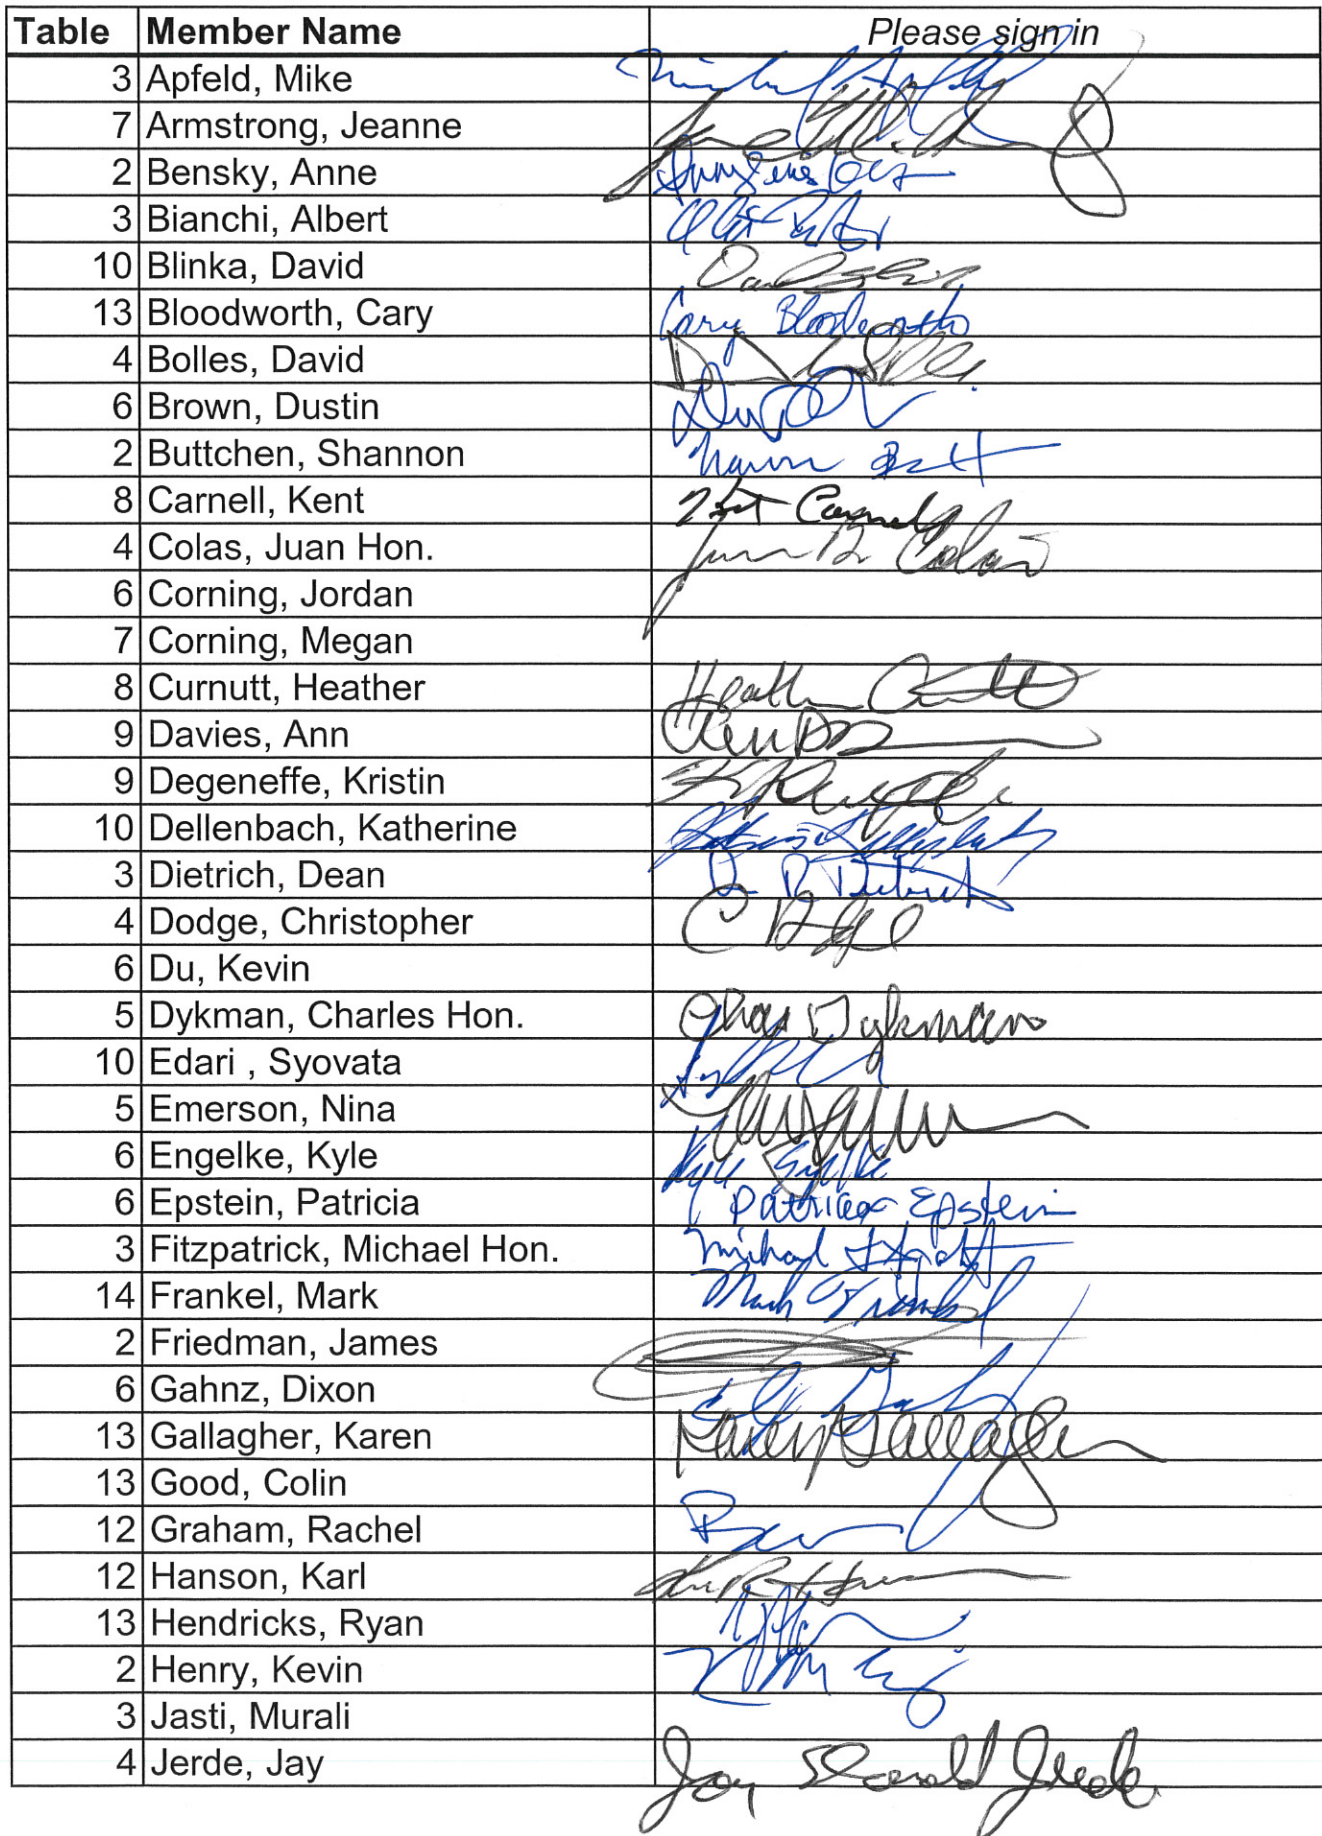 Table Member Name Please sign in
3 Apfeld, Mike
7 Armstrong, Jeanne
2 Bensky, Anne
3 Bianchi, Albert
10 Blinka, David
13 Bloodworth, Cary Cary Bloodworth
4 Bolles, David
6 Brown, Dustin
2 Buttchen, Shannon
8 Carnell, Kent Kent Carnell
4 Colas, Juan Hon. Juan B. Colas
6 Corning, Jordan
7 Corning, Megan
8 Curnutt, Heather Heather
9 Davies, Ann
9 Degeneffe, Kristin
10 Dellenbach, Katherine
3 Dietrich, Dean D R Dietrich
4 Dodge, Christopher
6 Du, Kevin
5 Dykman, Charles Hon. Chas Dykman
10 Edari , Syovata
5 Emerson, Nina
6 Engelke, Kyle Kyle Engelke
6 Epstein, Patricia Patricia Epstein
3 Fitzpatrick, Michael Hon. Michael Fitzpatrick
14 Frankel, Mark Mark Frankel
2 Friedman, James
6 Gahnz, Dixon
13 Gallagher, Karen Gallagher
13 Good, Colin
12 Graham, Rachel
12 Hanson, Karl
13 Hendricks, Ryan
2 Henry, Kevin
3 Jasti, Murali
4 Jerde, Jay Jay Donald Jerde